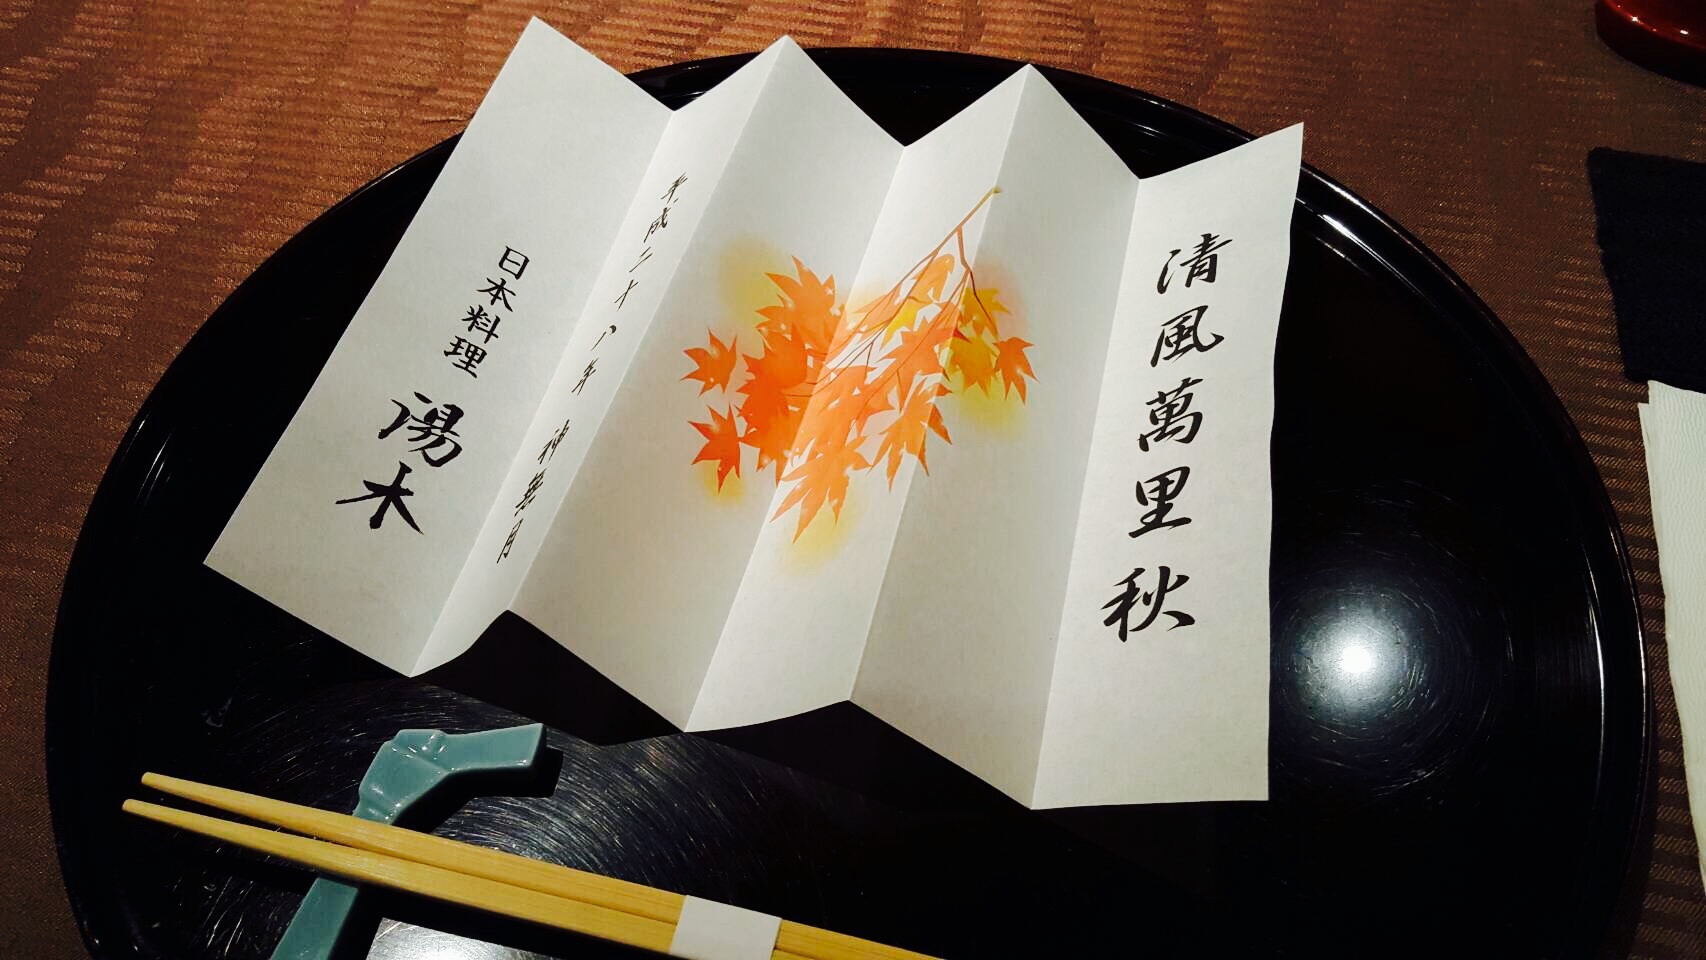 清風萬里秋
平成二十八年 神無月
日本料理 湯木